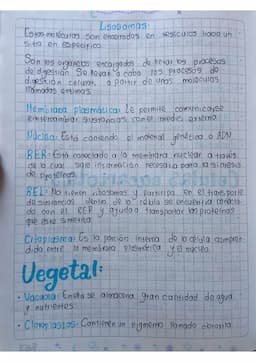 Lisosomas:
Estas moléculas son encerradas en vesículas hacia un
sitio en específico.
Son los organelos encargados de tener los procesos
de digestión. Se llevan a cabo los procesos de
digestión celular, a partir de unas moléculas
llamadas enzimas.
Membrana plasmática: Le permite comunicarse
e intercambiar sustancias con el medio externo.
Núcleo: Está contenido el material genético o ADN
RER: Está conectado a la membrana nuclear a través
de la cual sale información necesaria para la síntesis
de proteínas.
REL: No tienen ribosomas y participa en el transporte
de sustancias dentro de la célula se encuentra conecta
do con el RER y ayuda a transportar las proteínas
que este sintetiza.
Citoplasma: Es la porción interna de la célula compren
dida entre la membrana plasmática y el núcleo
Vegetal:
• Vacuola: En ella se almacena gran cantidad de agua
y nutrientes.
• Cloroplastos: Contienen un pigmento llamado clorofila